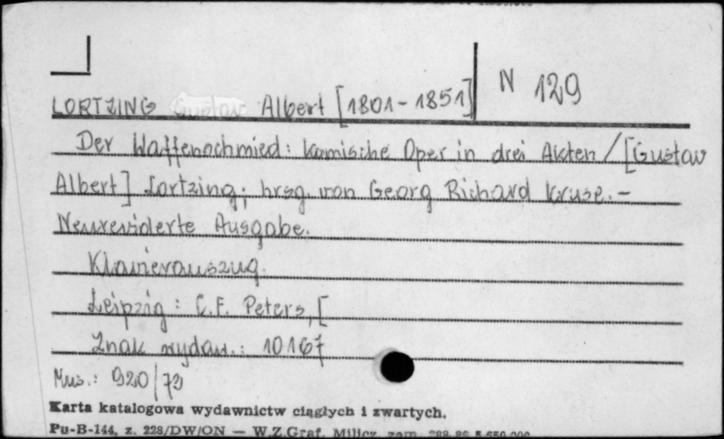 N 129
LORTZING Gustav Albert [1801-1851]
Der Waffenschmied: komische Oper in drei Akten / [Gustav
Albert] Lortzing; hrsg. von Georg Richard Kruse. -
Neurevidierte Ausgabe.
Klavierauszug.
Leipzig: C.F. Peters, [
Znak wydaw.: 10167
Mus.: 920/73
Karta katalogowa wydawnictw ciągłych i zwartych.
Pu-B-144, z. 228/DW/ON — W.Z.Graf. Milicz zam.